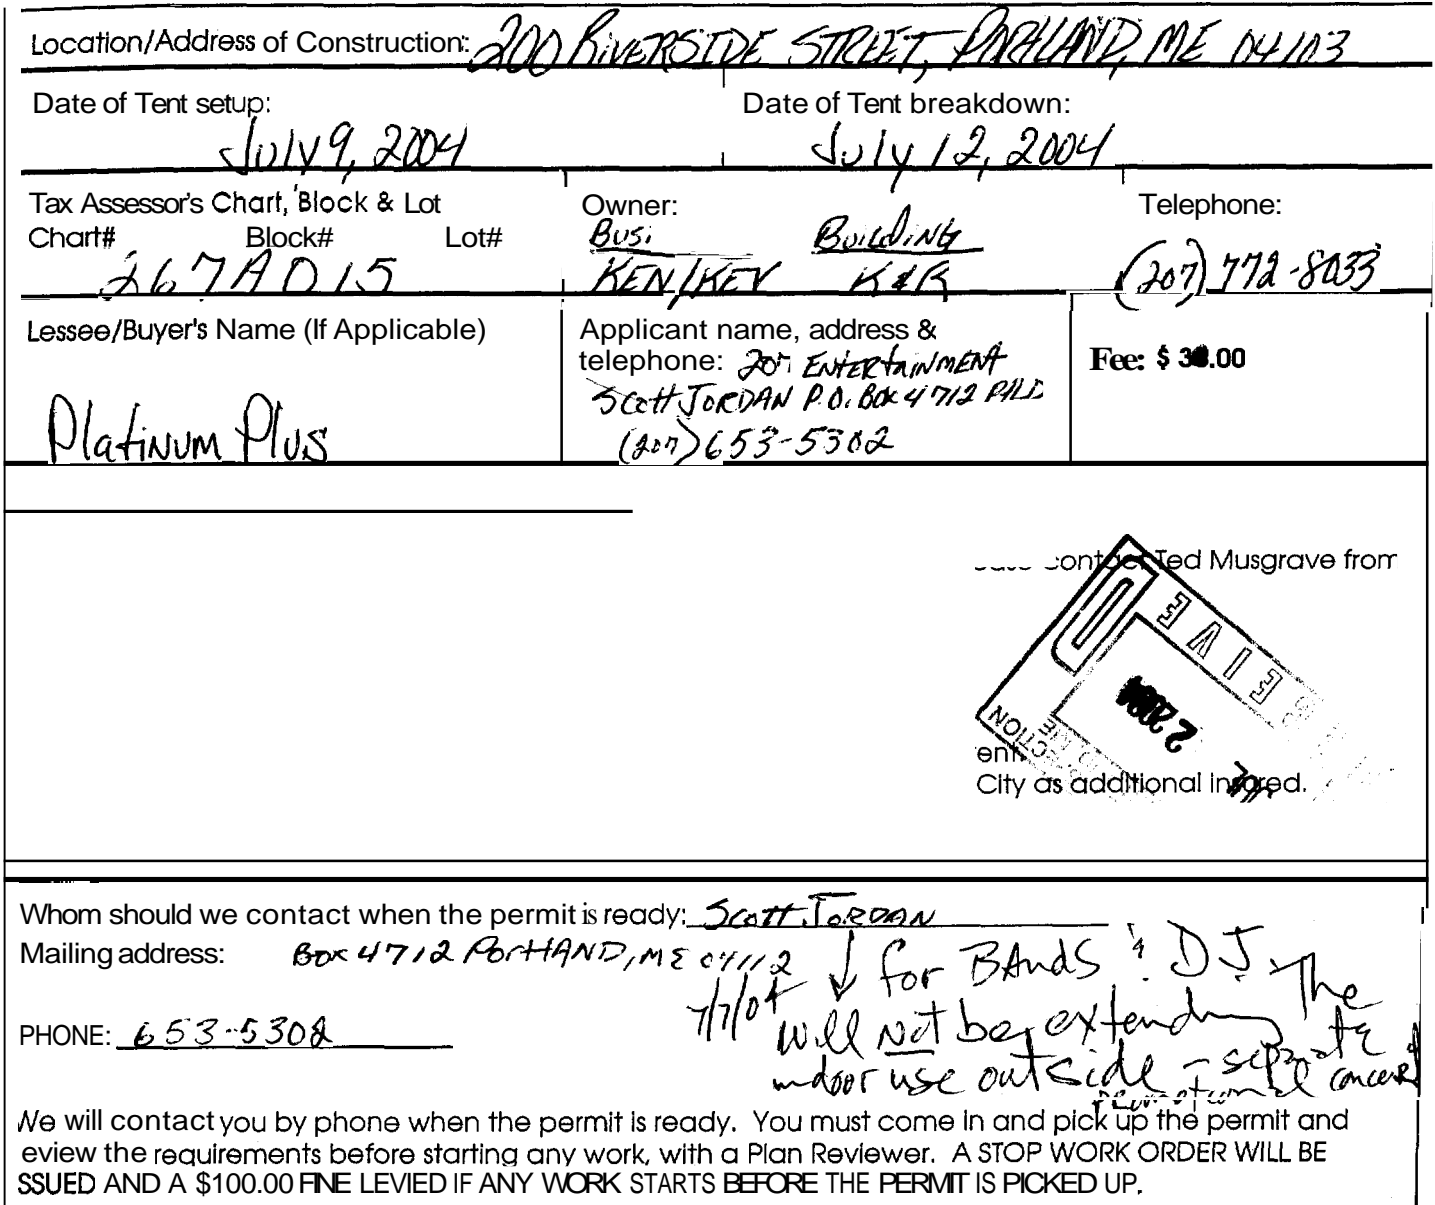 Location/Address of Construction: 200 RIVERSIDE STREET, PORTLAND, ME 04103
Date of Tent setup: Date of Tent breakdown:
July 9, 2004 July 12, 2004
Tax Assessor's Chart, Block & Lot Owner: Telephone:
Chart# Block# Lot# Busi BUILDING
267A015 KEN/KEV K&R (207) 772-8033
Lessee/Buyer's Name (If Applicable) Applicant name, address &
telephone: 207 ENTERTAINMENT Fee: $ .00
SCOTT JORDAN P.O. BOX 4712 PTLD
Platinum Plus (207) 653-5302
contact Ted Musgrave from
EIVE
2 2004
CTION
ent.
City as additional insured.
Whom should we contact when the permit is ready: SCOTT JORDAN
Mailing address: BOX 4712 PORTLAND, ME 04112
7/7/04 for BANDS & DJ. The
PHONE: 653-5302 will not be extending the
indoor use outside - separate
promotional concert
We will contact you by phone when the permit is ready. You must come in and pick up the permit and
eview the requirements before starting any work, with a Plan Reviewer. A STOP WORK ORDER WILL BE
SSUED AND A $100.00 FINE LEVIED IF ANY WORK STARTS BEFORE THE PERMIT IS PICKED UP.